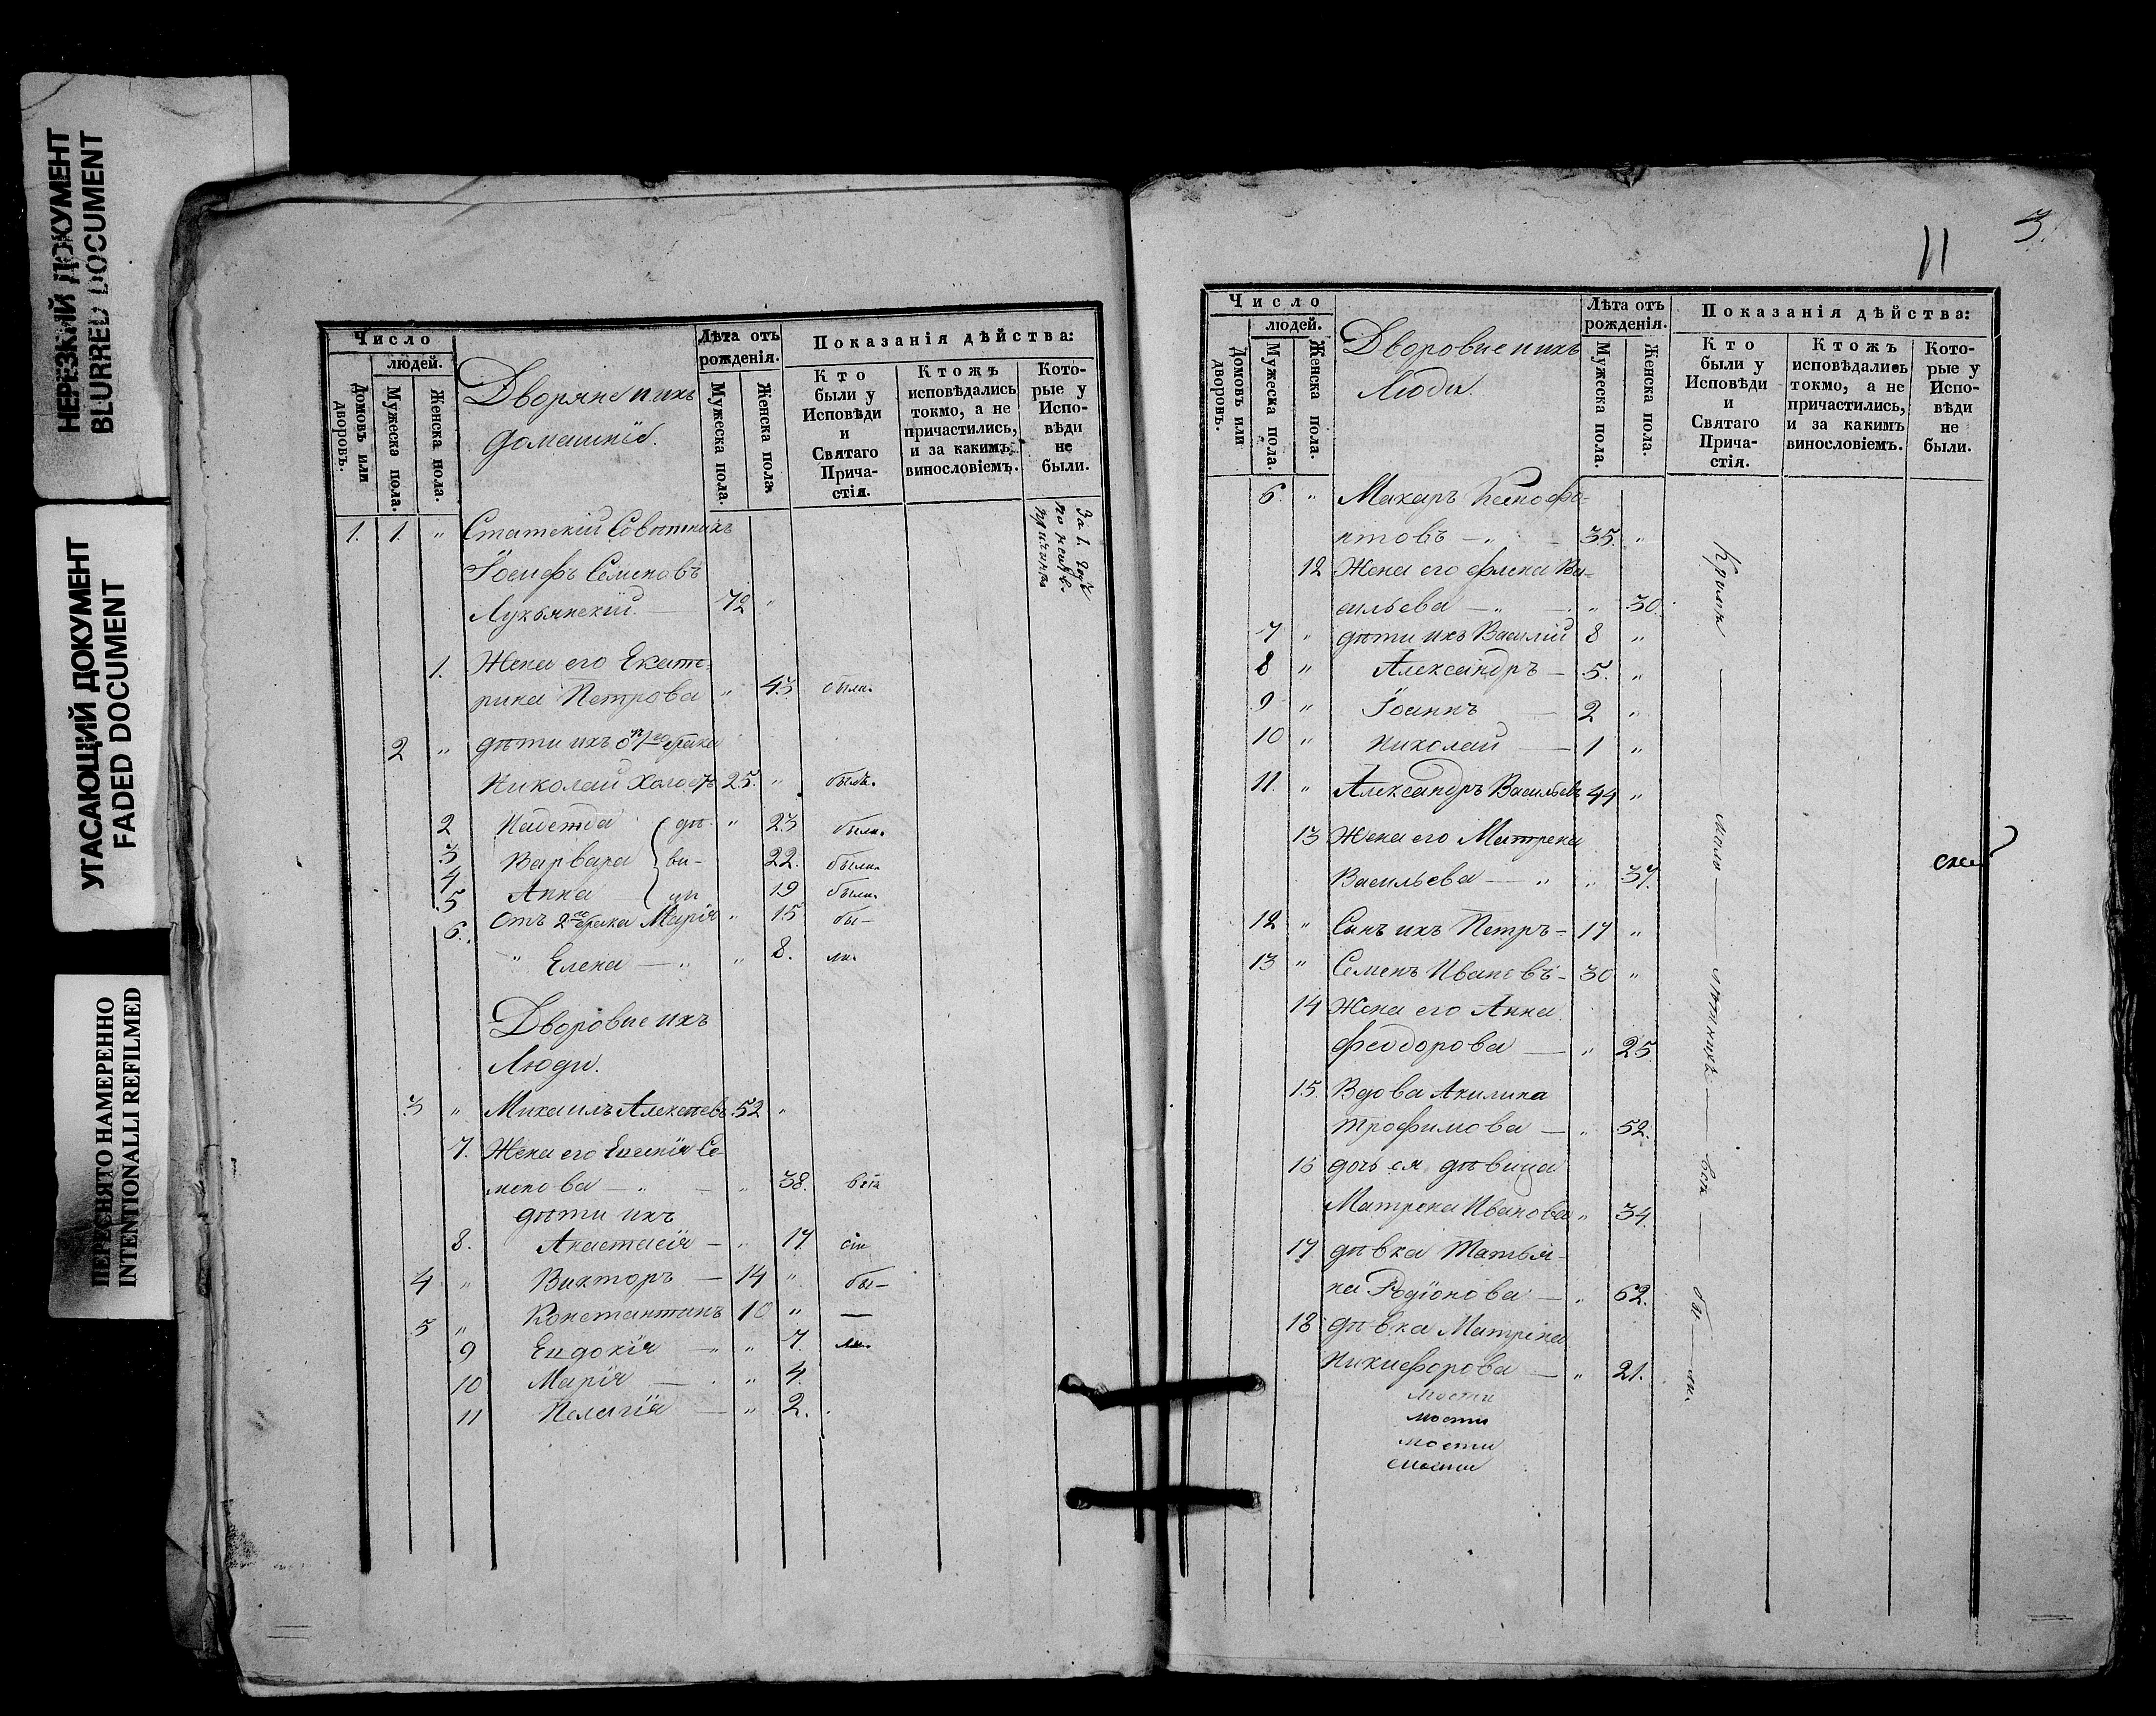 НЕРЕЗКИЙ ДОКУМЕНТ
BLURRED DOCUMENT
УГАСАЮЩИЙ ДОКУМЕНТ
FADED DOCUMENT
ПЕРЕСНЯТО НАМЕРЕННО
INTENTIONALLI REFILMED
Число
людей.
Домовъ или дворовъ.
Мужеска пола.
Женска пола.
Дворяне и ихъ
домашніе.
Лѣта отъ
рожденія.
Мужеска пола.
Женска пола.
Показанія дѣйства:
Кто
были у
Исповѣди
и
Святаго
Прича-
стія.
Ктожъ
исповѣдались
токмо, а не
причастились,
и за какимъ
винословіемъ.
Кото-
рые у
Испо-
вѣди
не
были.
1. 1. " Статскій Совѣтникъ
Іосифъ Семеновъ
Лукьянскій — 72 "
1. Жена его Екате-
рина Петрова " 43 была.
2 " дѣти ихъ отъ 1го брака
Николай Холостъ 25. " былъ.
2 Надежда дѣ- " 23 была.
3 Варвара ви- 22. была.
4 Анна цы 19 была.
5 Отъ 2го брака Марія " 15 бы-
6. " Елена — " " 8. ли.
Дворовые ихъ
Люди.
3 " Михаилъ Алексѣевъ 52 "
7. Жена его Евгенія Се-
менова — " — " 38.
дѣти ихъ
8. Анастасія — " 17.
4 " Викторъ — 14 " бы-
5 " Константинъ 10 " —
9 Евдокія — " " 7. ли.
10 Марія — " 4.
11 Пелагія — " 2.
3.
11
Число
людей.
Домовъ или дворовъ.
Мужеска пола.
Женска пола.
Дворовые ихъ
Люди.
Лѣта отъ
рожденія.
Мужеска пола.
Женска пола.
Показанія дѣйства:
Кто
были у
Исповѣди
и
Святаго
Прича-
стія.
Ктожъ
исповѣдались
токмо, а не
причастились,
и за какимъ
винословіемъ.
Кото-
рые у
Испо-
вѣди
не
были.
6. " Макаръ Ксенофо-
нтовъ — " — 35. "
12 Жена его Елена Ва-
сильева — " — " 30.
7 " дѣти ихъ Василій 8 "
8 " Александръ — 5. "
9 " Іоаннъ — 2 "
10 " Николай — 1 "
11. " Александръ Васильевъ 44 "
13 Жена его Матрена
Васильева — " " 37.
12 " Сынъ ихъ Петръ - 17 "
13 " Семенъ Ивановъ - 30 "
14 Жена его Анна
Феодорова — " 25.
15. Вдова Акилина
Трофимова — " 52.
16 дочь ея дѣвица
Матрена Иванова " 34.
17 дѣвка Татья-
на Родіонова — " 62.
18 дѣвка Матрена
Никифорова — " 21.
Кромѣ — мало — лѣтнихъ — всѣ — бы — ли.